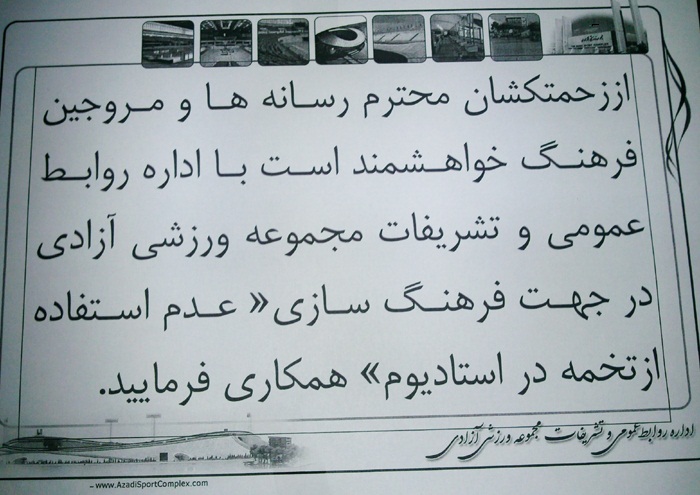 اززحمتکشان محترم رسانه ها و مروجین
فرهنگ خواهشمند است با اداره روابط
عمومی و تشریفات مجموعه ورزشی آزادی
در جهت فرهنگ سازی« عدم استفاده
ازتخمه در استادیوم» همکاری فرمایید.
اداره روابط عمومی و تشریفات مجموعه ورزشی آزادی
www.AzadiSportComplex.com